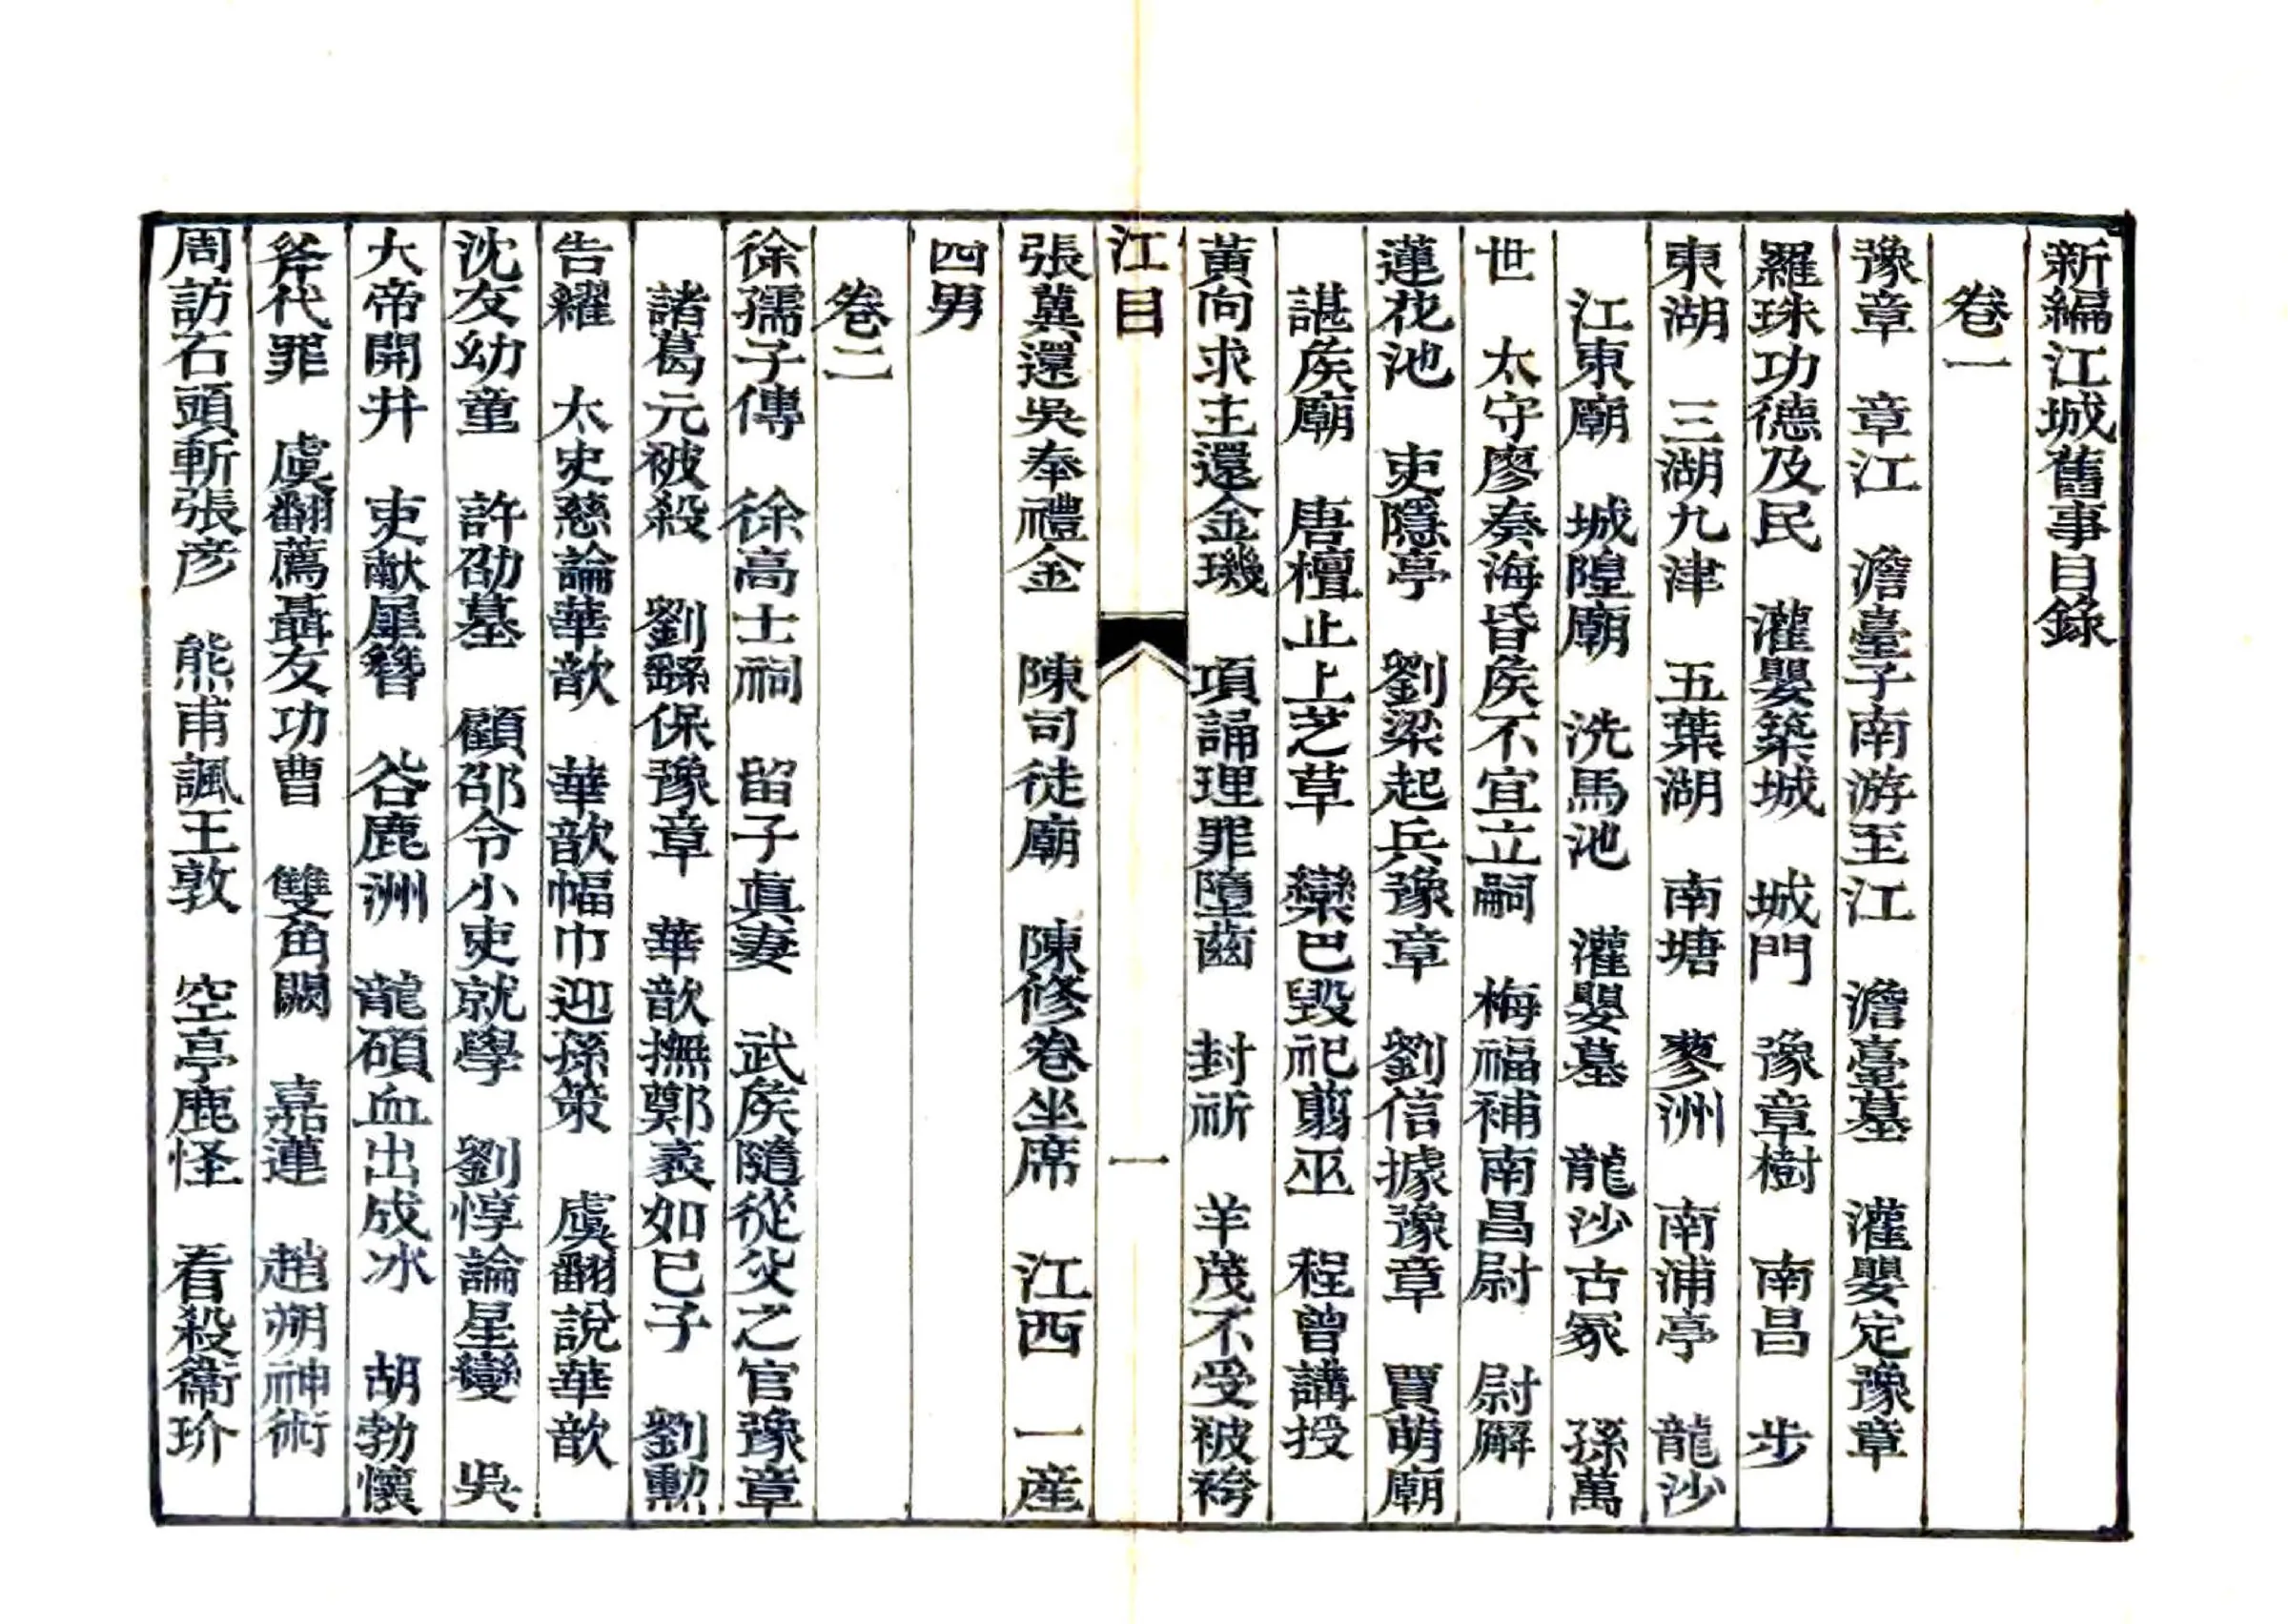 新編江城舊事目錄
卷一
豫章　章江　澹臺子南游至江　澹臺墓　灌嬰定豫章
羅珠功德及民　灌嬰築城　城門　豫章樹　南昌　步
東湖　三湖九津　五葉湖　南塘　蓼洲　南浦亭　龍沙
江東廟　城隍廟　洗馬池　灌嬰墓　龍沙古冢　孫萬
世　太守廖奏海昏矦不宜立嗣　梅福補南昌尉　尉廨
蓮花池　吏隱亭　劉梁起兵豫章　劉信據豫章　賈萌廟
諶矦廟　唐檀止上芝草　欒巴毀祀翦巫　程曾講授
黃向求主還金璣　項誦理罪墮齒　封祈　羊茂不受被袴
江目　一
張冀還吳奉禮金　陳司徒廟　陳修卷坐席　江西　一產
四男
卷二
徐孺子傳　徐高士祠　留子真妻　武矦隨從父之官豫章
諸葛元被殺　劉繇保豫章　華歆撫鄭袤如已子　劉勲
告糴　太史慈論華歆　華歆幅巾迎孫策　虞翻說華歆
沈友幼童　許劭墓　顧邵令小吏就學　劉惇論星變　吳
大帝開井　吏献犀簪　谷鹿洲　龍碩血出成冰　胡勃懷
斧代罪　虞翻薦聶友功曹　雙角闕　嘉蓮　趙朔神術
周訪石頭斬張彦　熊甫諷王敦　空亭鹿怪　看殺衞玠